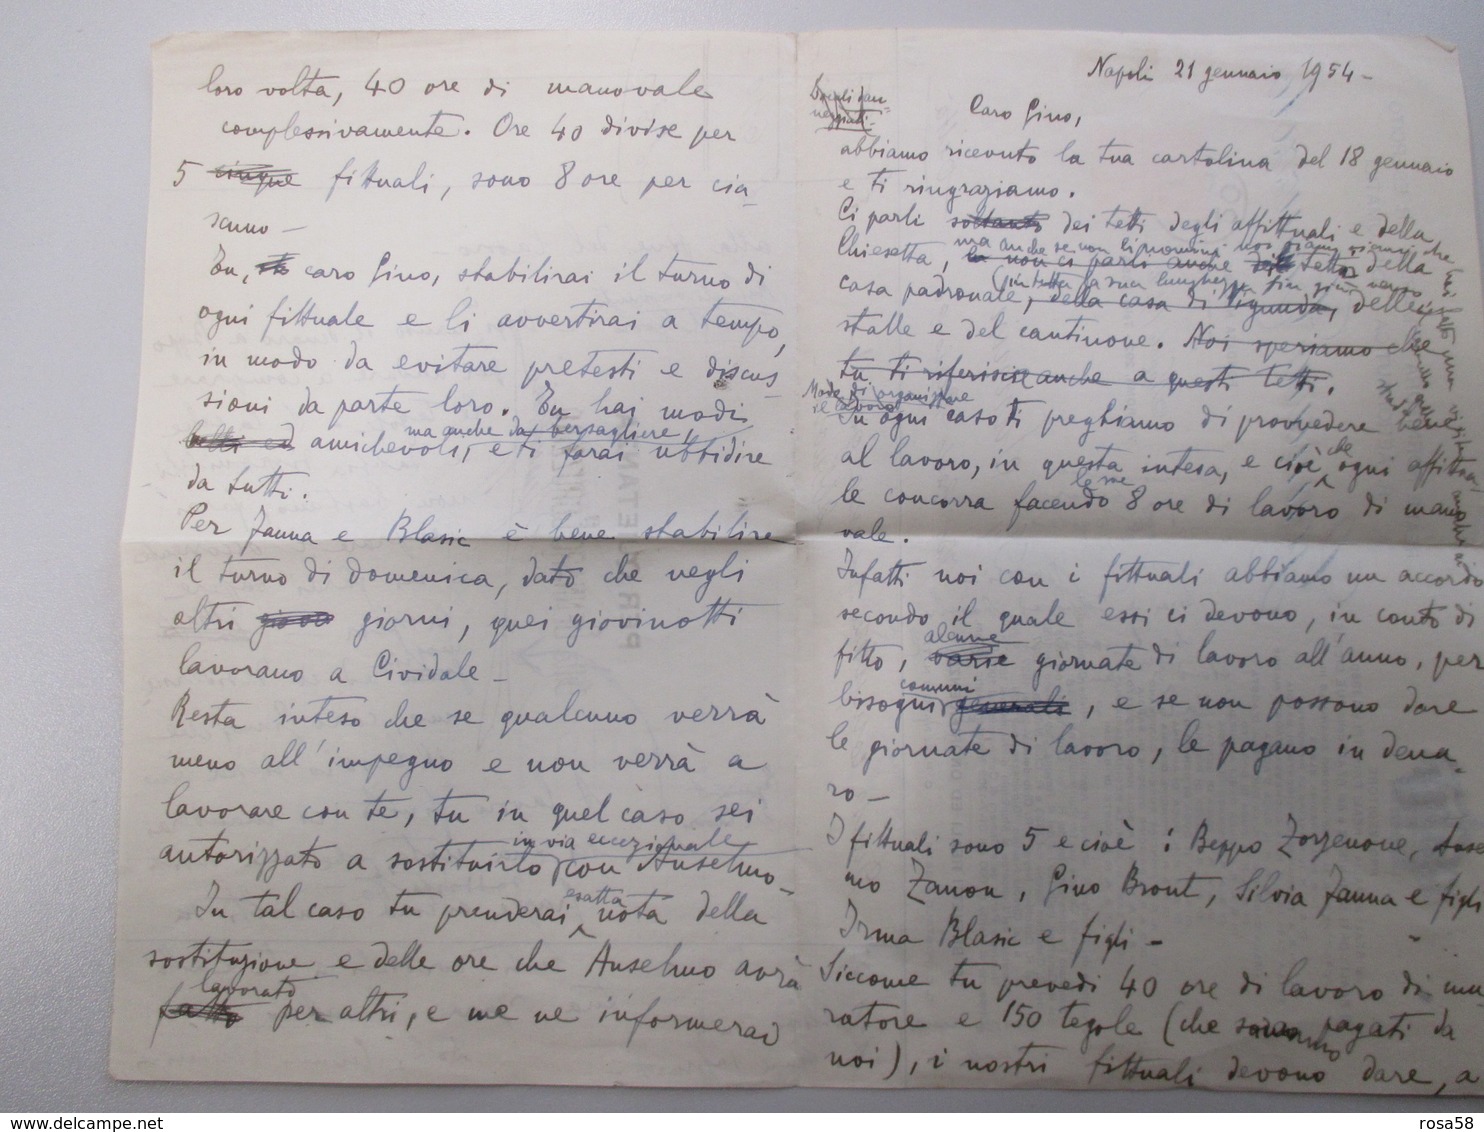 Napoli 21 gennaio 1954-
Caro Gino,
abbiamo ricevuto la tua cartolina del 18 gennaio
e ti ringraziamo.
Ci parli soltanto dei tetti degli affittuali e della
ma anche se non li nomini noi
Chiesetta, non ci parli anche tetto della
(in tutta la sua lunghezza fin giù verso
casa padronale, della casa di Sigunda, delle
stalle e del cantinone. Noi speriamo che
tu ti riferisci anche a questi tetti.
Modo di organizzare
il lavoro
In ogni caso ti preghiamo di provvedere bene
al lavoro, in questa intesa, e cioè che ogni affittua-
le concorra facendo le sue 8 ore di lavoro di mano
vale.
Infatti noi con i fittuali abbiamo un accordo
secondo il quale essi ci devono, in conto di
alcune
fitto, varie giornate di lavoro all'anno, per
comuni
bisogni generali, e se non possono dare
le giornate di lavoro, le pagano in dena-
ro-
I fittuali sono 5 e cioè: Beppo Zorzenone, Anse
mo Zanon, Gino Bront, Silvia Janna e figli
Irma Blasic e figli-
Siccome tu prevedi 40 ore di lavoro di mu
ratore e 150 tegole (che saranno pagati da
noi), i nostri fittuali devono dare, a
loro volta, 40 ore di manovale
complessivamente. Ore 40 divise per
5 cinque fittuali, sono 8 ore per cia-
scuno-
Tu, caro Gino, stabilirai il turno di
ogni fittuale e li avvertirai a tempo,
in modo da evitare pretesti e discus-
sioni da parte loro. Tu hai modi
ma anche da bersagliere,
belli ed amichevoli, e ti farai ubbidire
da tutti.
Per Janna e Blasic è bene stabilire
il turno di domenica, dato che negli
altri giorni, quei giovinotti
lavorano a Cividale-
Resta inteso che se qualcuno verrà
meno all'impegno e non verrà a
lavorare con te, tu in quel caso sei
in via eccezionale
autorizzato a sostituirlo con Anselmo-
In tal caso tu prenderai esatta nota della
sostituzione e delle ore che Anselmo avrà
lavorato
fatto per altri, e me ne informerai
rosa58